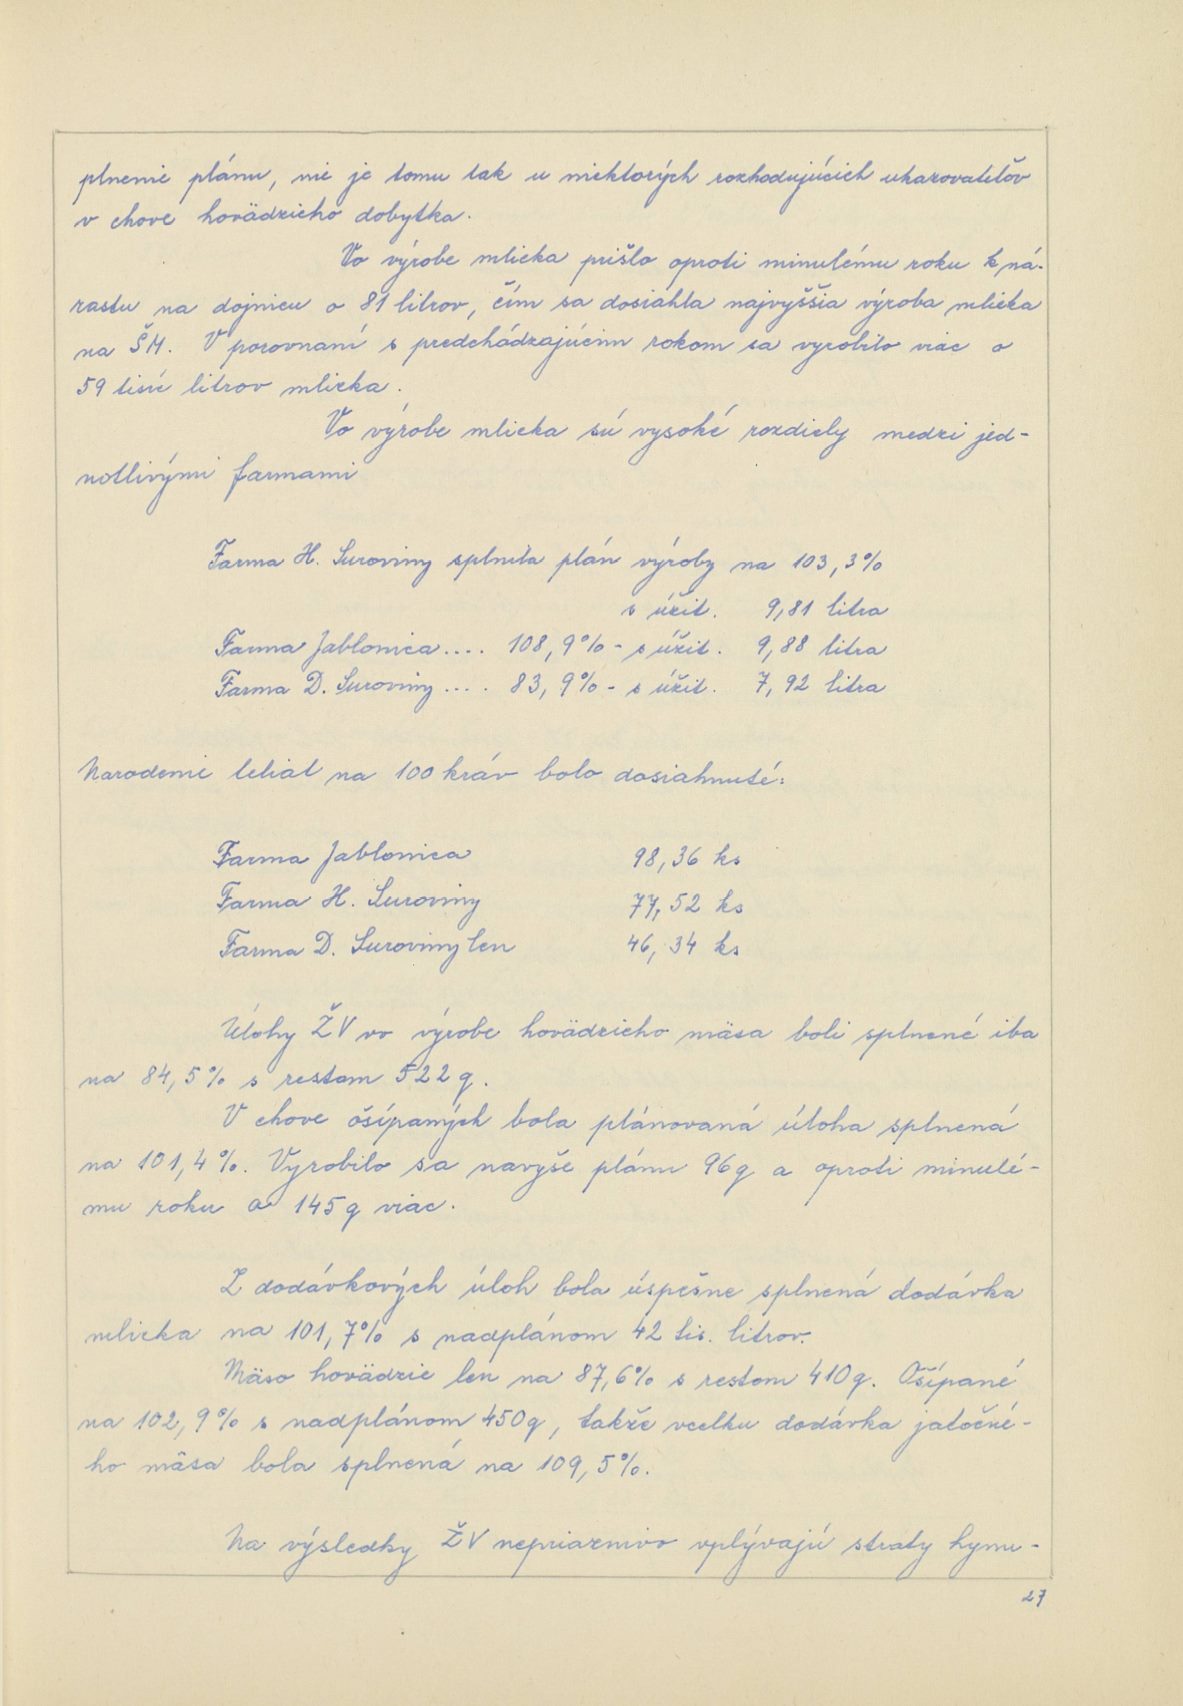 plnenie plánu, nie je tomu tak u niektorých rozhodujúcich ukazovateľov
v chove hovädzieho dobytka.
Vo výrobe mlieka prišlo oproti minulému roku k ná-
rastu na dojnicu o 81 litrov, čím sa dosiahla najvyššia výroba mlieka
na ŠM. V porovnaní s predchádzajúcim rokom sa vyrobilo viac o
59 tisíc litrov mlieka.
Vo výrobe mlieka sú vysoké rozdiely medzi jed-
notlivými farmami
Farma H. Suroviny splnila plán výroby na 103,3%
s úžit. 9,81 litra
Farma Jablonica .... 108,9% - s úžit. 9,88 litra
Farma D. Suroviny .... 83,9% - s úžit. 7,92 litra
Narodenie teliat na 100 kráv bolo dosiahnuté:
Farma Jablonica 98,36 ks
Farma H. Suroviny 77,52 ks
Farma D. Suroviny len 46,34 ks
Úlohy ŽV vo výrobe hovädzieho mäsa boli splnené iba
na 84,5% s restom 522 q.
V chove ošípaných bola plánovaná úloha splnená
na 101,4%. Vyrobilo sa navyše plánu 96 q a oproti minulé-
mu roku o 145 q viac.
Z dodávkových úloh bola úspešne splnená dodávka
mlieka na 101,7% s nadplánom 42 tis. litrov.
Mäso hovädzie len na 87,6% s restom 410 q. Ošípané
na 102,9% s nadplánom 450 q, takže vcelku dodávka jatočné-
ho mäsa bola splnená na 109,5%.
Na výsledky ŽV nepriaznivo vplývajú straty hynu-
27